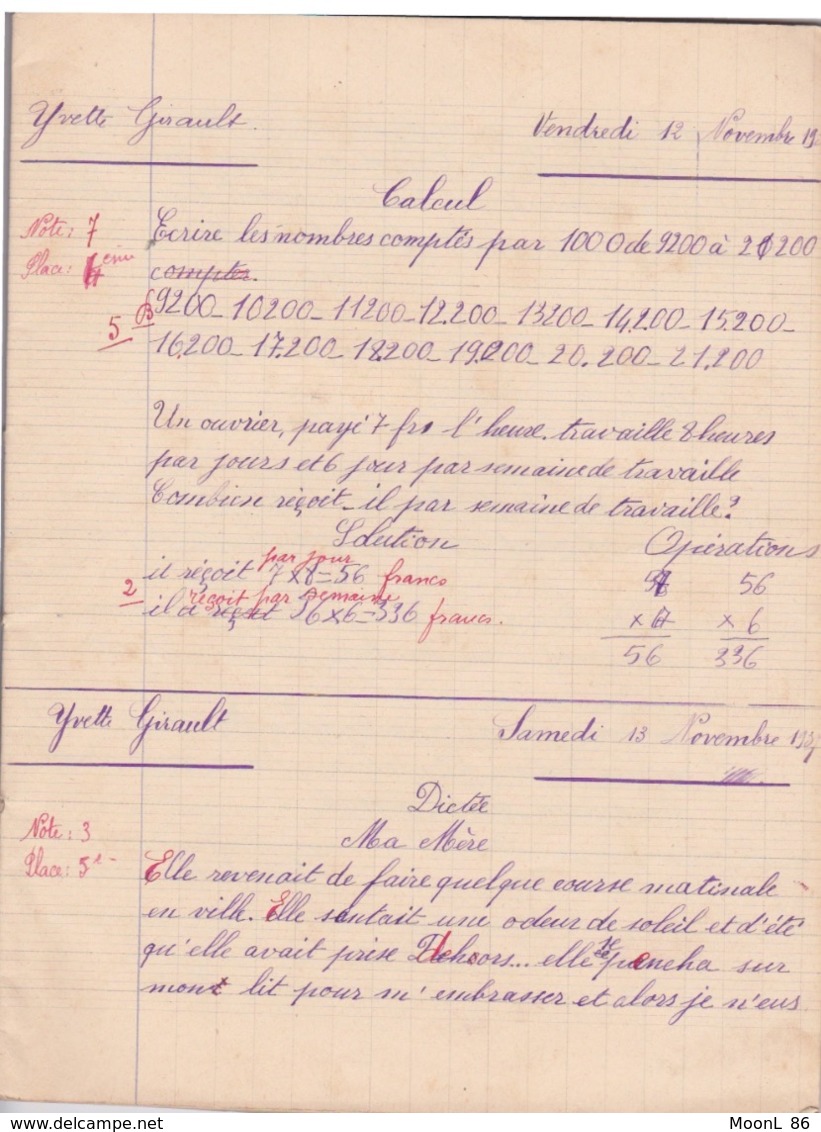 Yvette Girault.
Vendredi 12 Novembre 19
Calcul
Note: 7
Place: 4 eme
Ecrire les nombres comptés par 1000 de 9200 à 21200
compter.
B
5
9200_ 10200_ 11200_ 12.200_ 13200_ 14.200_ 15.200_
16.200_ 17.200_ 18.200_ 19.200_ 20.200_ 21.200
Un ouvrier, payé 7 frs l'heure. travaille 8 heures
par jours et 6 jour par semaine de travaille
Combien reçoit_il par semaine de travaille?
Solution
Opérations
par jour
it réçoit 7 x 8 = 56 francs
2
reçoit par semaine
il a reçut 56 x 6 = 336 francs.
7 56
x x 6
56 336
Yvette Girault
Samedi 13 Novembre 1937
Dictée
Ma Mère
Note: 3
Place: 5e
Elle revenait de faire quelque course matinale
en ville. Elle sentait une odeur de soleil et d'été
qu'elle avait prise Dehors... elle se pencha sur
mont lit pour m'embrasser et alors je n'eus
MoonL 86